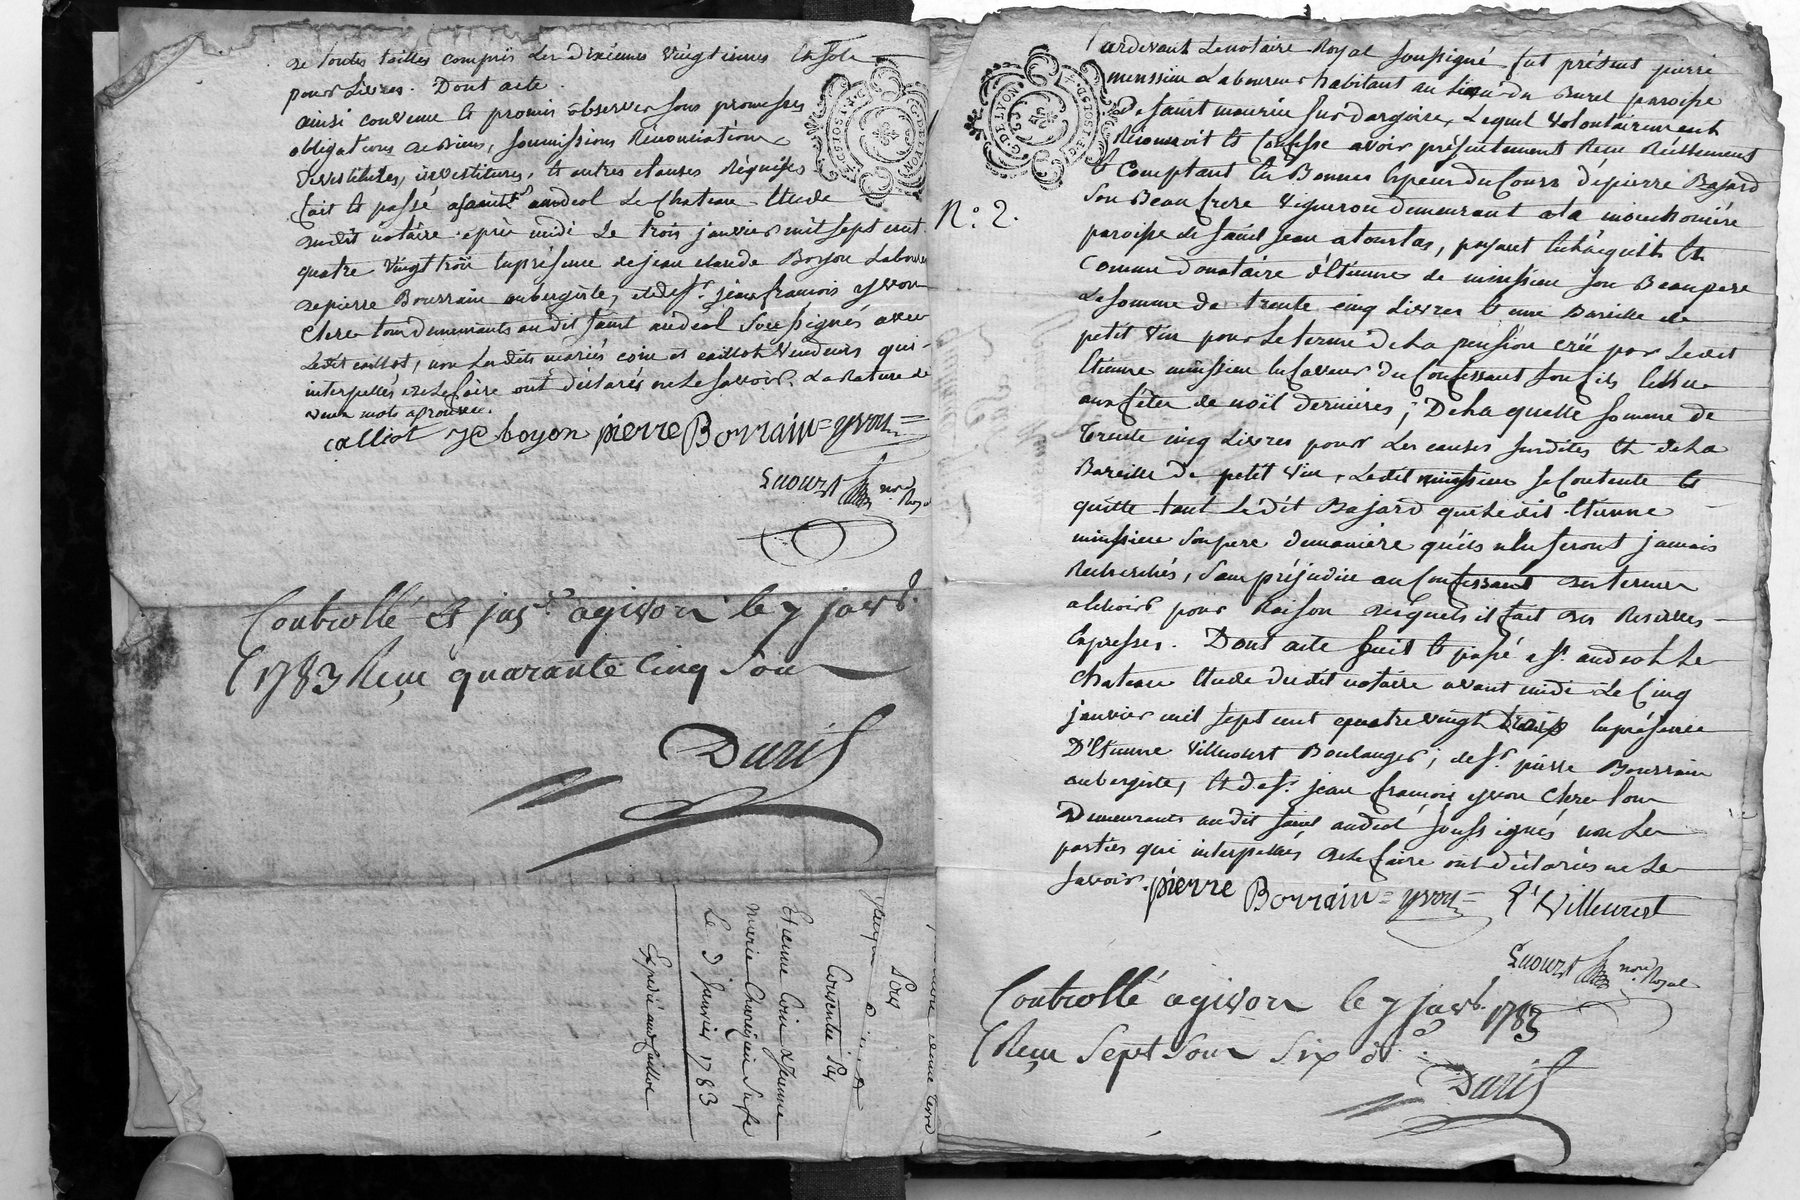 de toutes tailles compris les dixièmes vingtièmes et sols
pour livres. Dont acte.
ainsi convenu et promis observer sous promesses
obligations de biens, soumissions Renonciations
devestitures, investitures, et autres clauses Réquises
fait et passé a saint andéol Le Chateau Etude
dudit notaire après midi Le trois janvier mil sept cent
quatre vingt trois En présence de jean claude Boyon Labour
de pierre Bourrain aubergiste, et de sr. jean francois yvon
Clerc tous demeurants audit saint andéol soussignés avec
Ledit caillot, non Lesdits mariés coin et caillot vendeurs qui
interpellés de Le faire ont déclarés ne Le savoir. La Rature de
deux mots aprouvée.
calliot JC boyon pierre Borrain = yvon =
nore. Royal
Controllé et a givors le 7 janvr.
1783 Reçu quarante cinq sous
Duris
Etienne Coin Lejeune
Le 3 janvier 1783
Expédié au caillot
G. DE LYON
N.° 2.
Pardevant Le notaire Royal soussigné fut présent pierre
minssieu Laboureur habitant au Lieu du Burel paroisse
De saint maurice sur dargoire, Lequel volontairement
Réconnoit et Confesse avoir présentement Reçu Réellement
et Comptant En Bonnes Especes du Cours de pierre Bajard
son Beau frere vigneron demeurant a la mouchonière
paroisse de saint jean a touslas, payant En acquit et
comme Donataire d'Etienne de minssieu son Beaupere
La somme de trente cinq Livres et une Bareille de
petit vin pour Le terme de La pension créé par Ledit
Etienne minssieu En faveur du Confessant son fils Echue
aux fêtes de noël dernieres; De La quelle somme de
trente cinq Livres pour Les causes susdites et de La
Bareille de petit vin, Ledit minssieu se Contente et
quitte tant Ledit Bajard que Ledit Etienne
minssieu son pere demanière qu'ils n'En seront jamais
Recherchés, sans préjudice au Confessant des termes
a Echoir pour Raison desquels il fait des Reserves
Expresses. Dont acte fait et passé a st. andeol Le
Chateau Etude dudit notaire avant midi Le Cinq
janvier mil sept cent quatre vingt trois En présence
D'Etienne Villecourt Boulanger, de sr. pierre Bourrain
aubergiste, et de sr. jean francois yvon Clerc tous
Demeurants audit saint andéol soussignés non Les
parties qui interpellés de Le faire ont déclarés ne Le
savoir. pierre Borrain = yvon = E Villecourt
nore. Royal
Controllé a givors le 7 janvr. 1783
Reçu Sept Sous Six d.
Duris